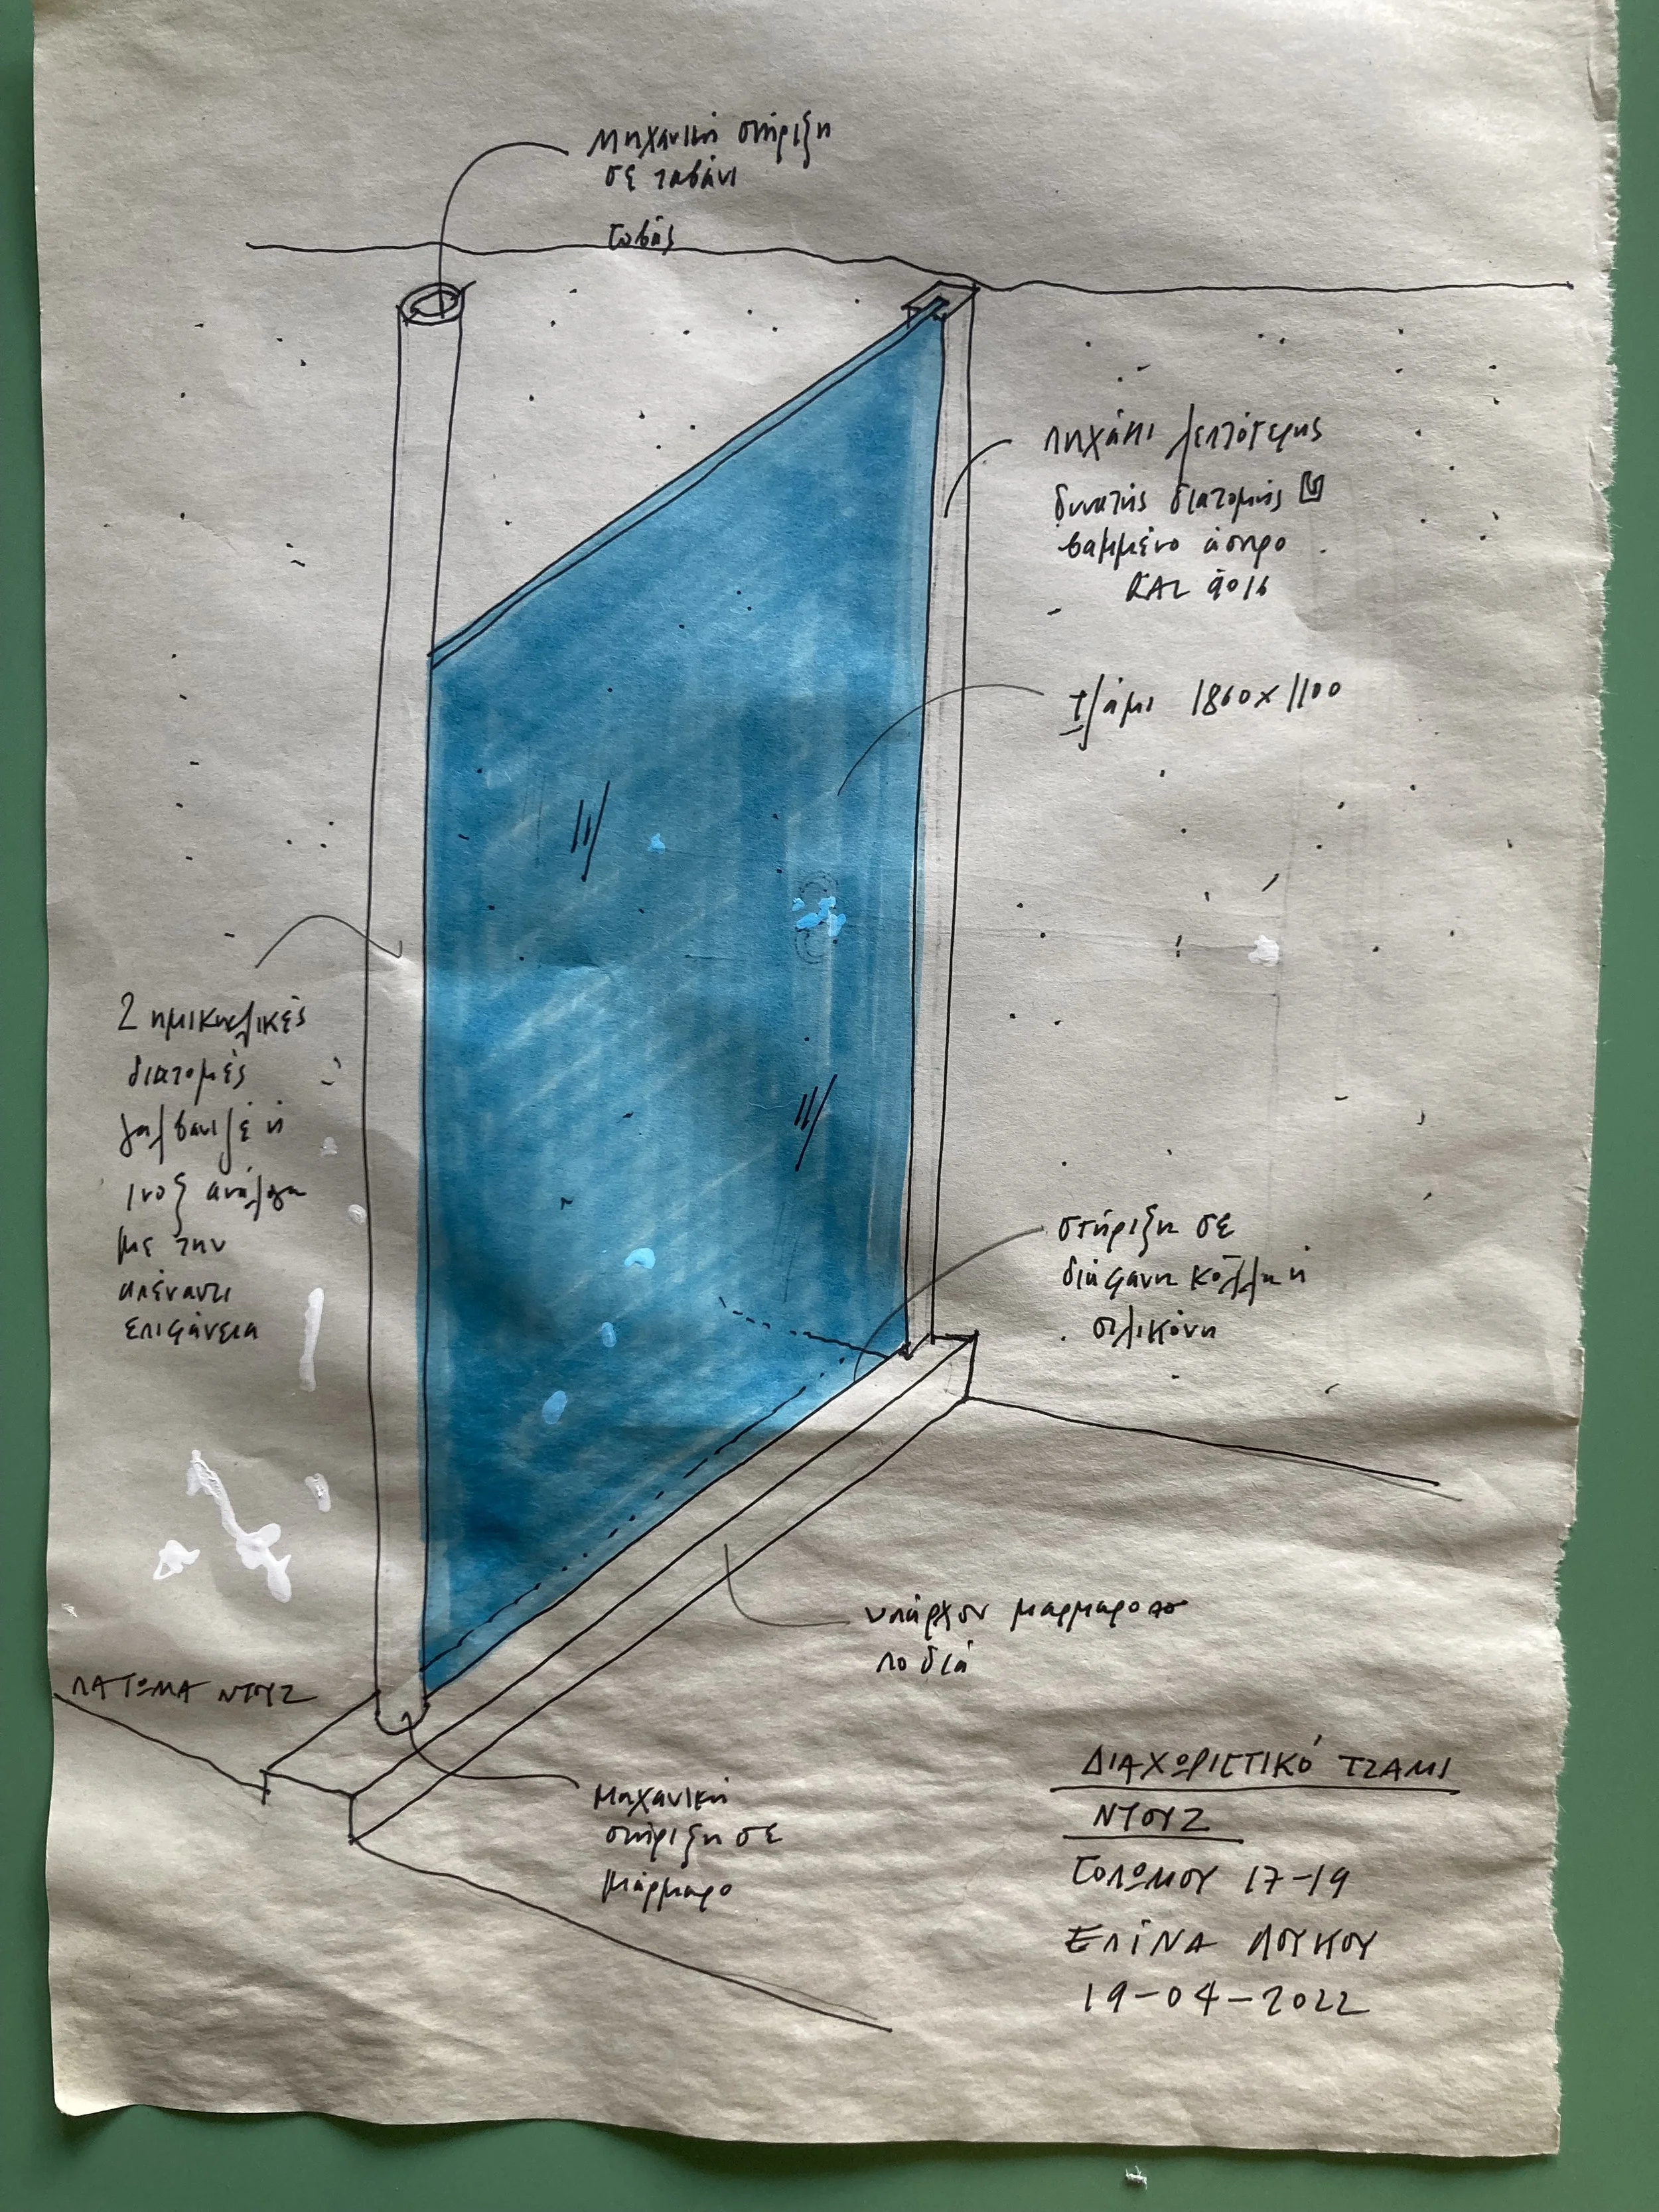 Μηχανική στήριξη
σε ταβάνι
σοβάς
πηχάκι λεπτότερης
δυνατής διατομής
βαμμένο άσπρο
RAL 9016
τζάμι 1860x1100
2 ημικυκλικές
διατομές
γαλβανιζέ ή
ινοξ ανάλογα
με την
απέναντι
επιφάνεια
στήριξη σε
διάφανη κόλλα ή
σιλικόνη
υπάρχον μαρμαρο
ποδιά
ΠΑΤΩΜΑ ΝΤΟΥΖ
Μηχανική
στήριξη σε
μάρμαρο
ΔΙΑΧΩΡΙΣΤΙΚό ΤΖΑΜΙ
ΝΤΟΥΖ
ΣΟΛΩΜΟΥ 17-19
ΕΛίΝΑ ΛΟΥΚΟΥ
19-04-2022